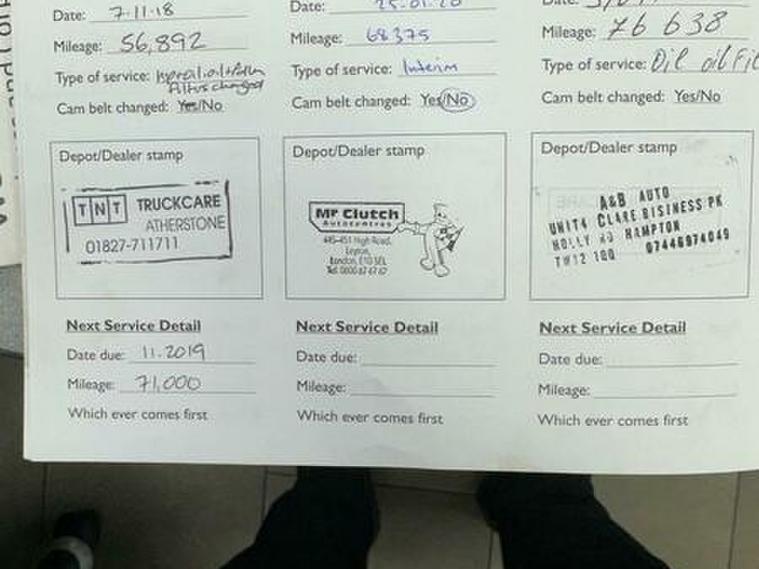 Date: 7.11.18
Mileage: 56,892
Type of service:
Filters changed
Cam belt changed: Yes/No
Depot/Dealer stamp
TNT TRUCKCARE
ATHERSTONE
01827-711711
Next Service Detail
Date due: 11.2019
Mileage: 71,000
Which ever comes first
Date: 25.01.20
Mileage: 68375
Type of service: Interim
Cam belt changed: Yes/No
Depot/Dealer stamp
Mr Clutch
Autocentres
445-451 High Road,
Leyton,
London, E10 5EL
Tel: 0800 67 67 67
Next Service Detail
Date due:
Mileage:
Which ever comes first
Date:
Mileage: 76 638
Type of service: Oil oil Fil
Cam belt changed: Yes/No
Depot/Dealer stamp
A&B AUTO
UNIT4 CLARE BISINESS PK
HOLLY RD HAMPTON
TW12 1QQ 07446974049
Next Service Detail
Date due:
Mileage:
Which ever comes first